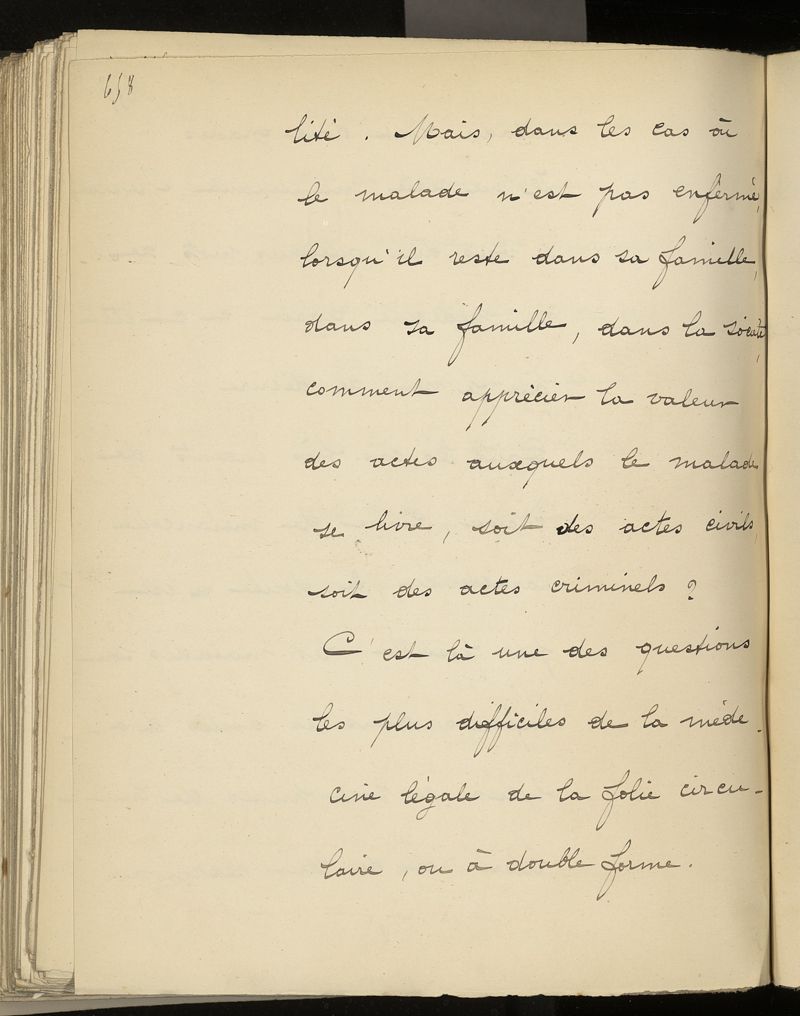 658
lité. Mais, dans les cas où
le malade n'est pas enfermé,
lorsqu'il reste dans sa famille,
dans sa famille, dans la société,
comment apprécier la valeur
des actes auxquels le malade
se livre, soit des actes civils,
soit des actes criminels ?
C'est là une des questions
les plus difficiles de la méde-
cine légale de la folie circu-
laire, ou à double forme.